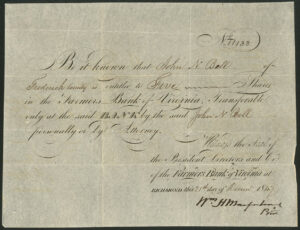 Be it known that John N. Bell of
Frederick County is entitled to Five Shares
in the Farmers Bank of Virginia, Transferable
only at the said BANK by the said John N. Bell
personally or by Attorney.
Witness the Seal of
the President Directors and Co. of
the Farmers Bank of Virginia at
Richmond this 21st day of
Wm H Macfarland